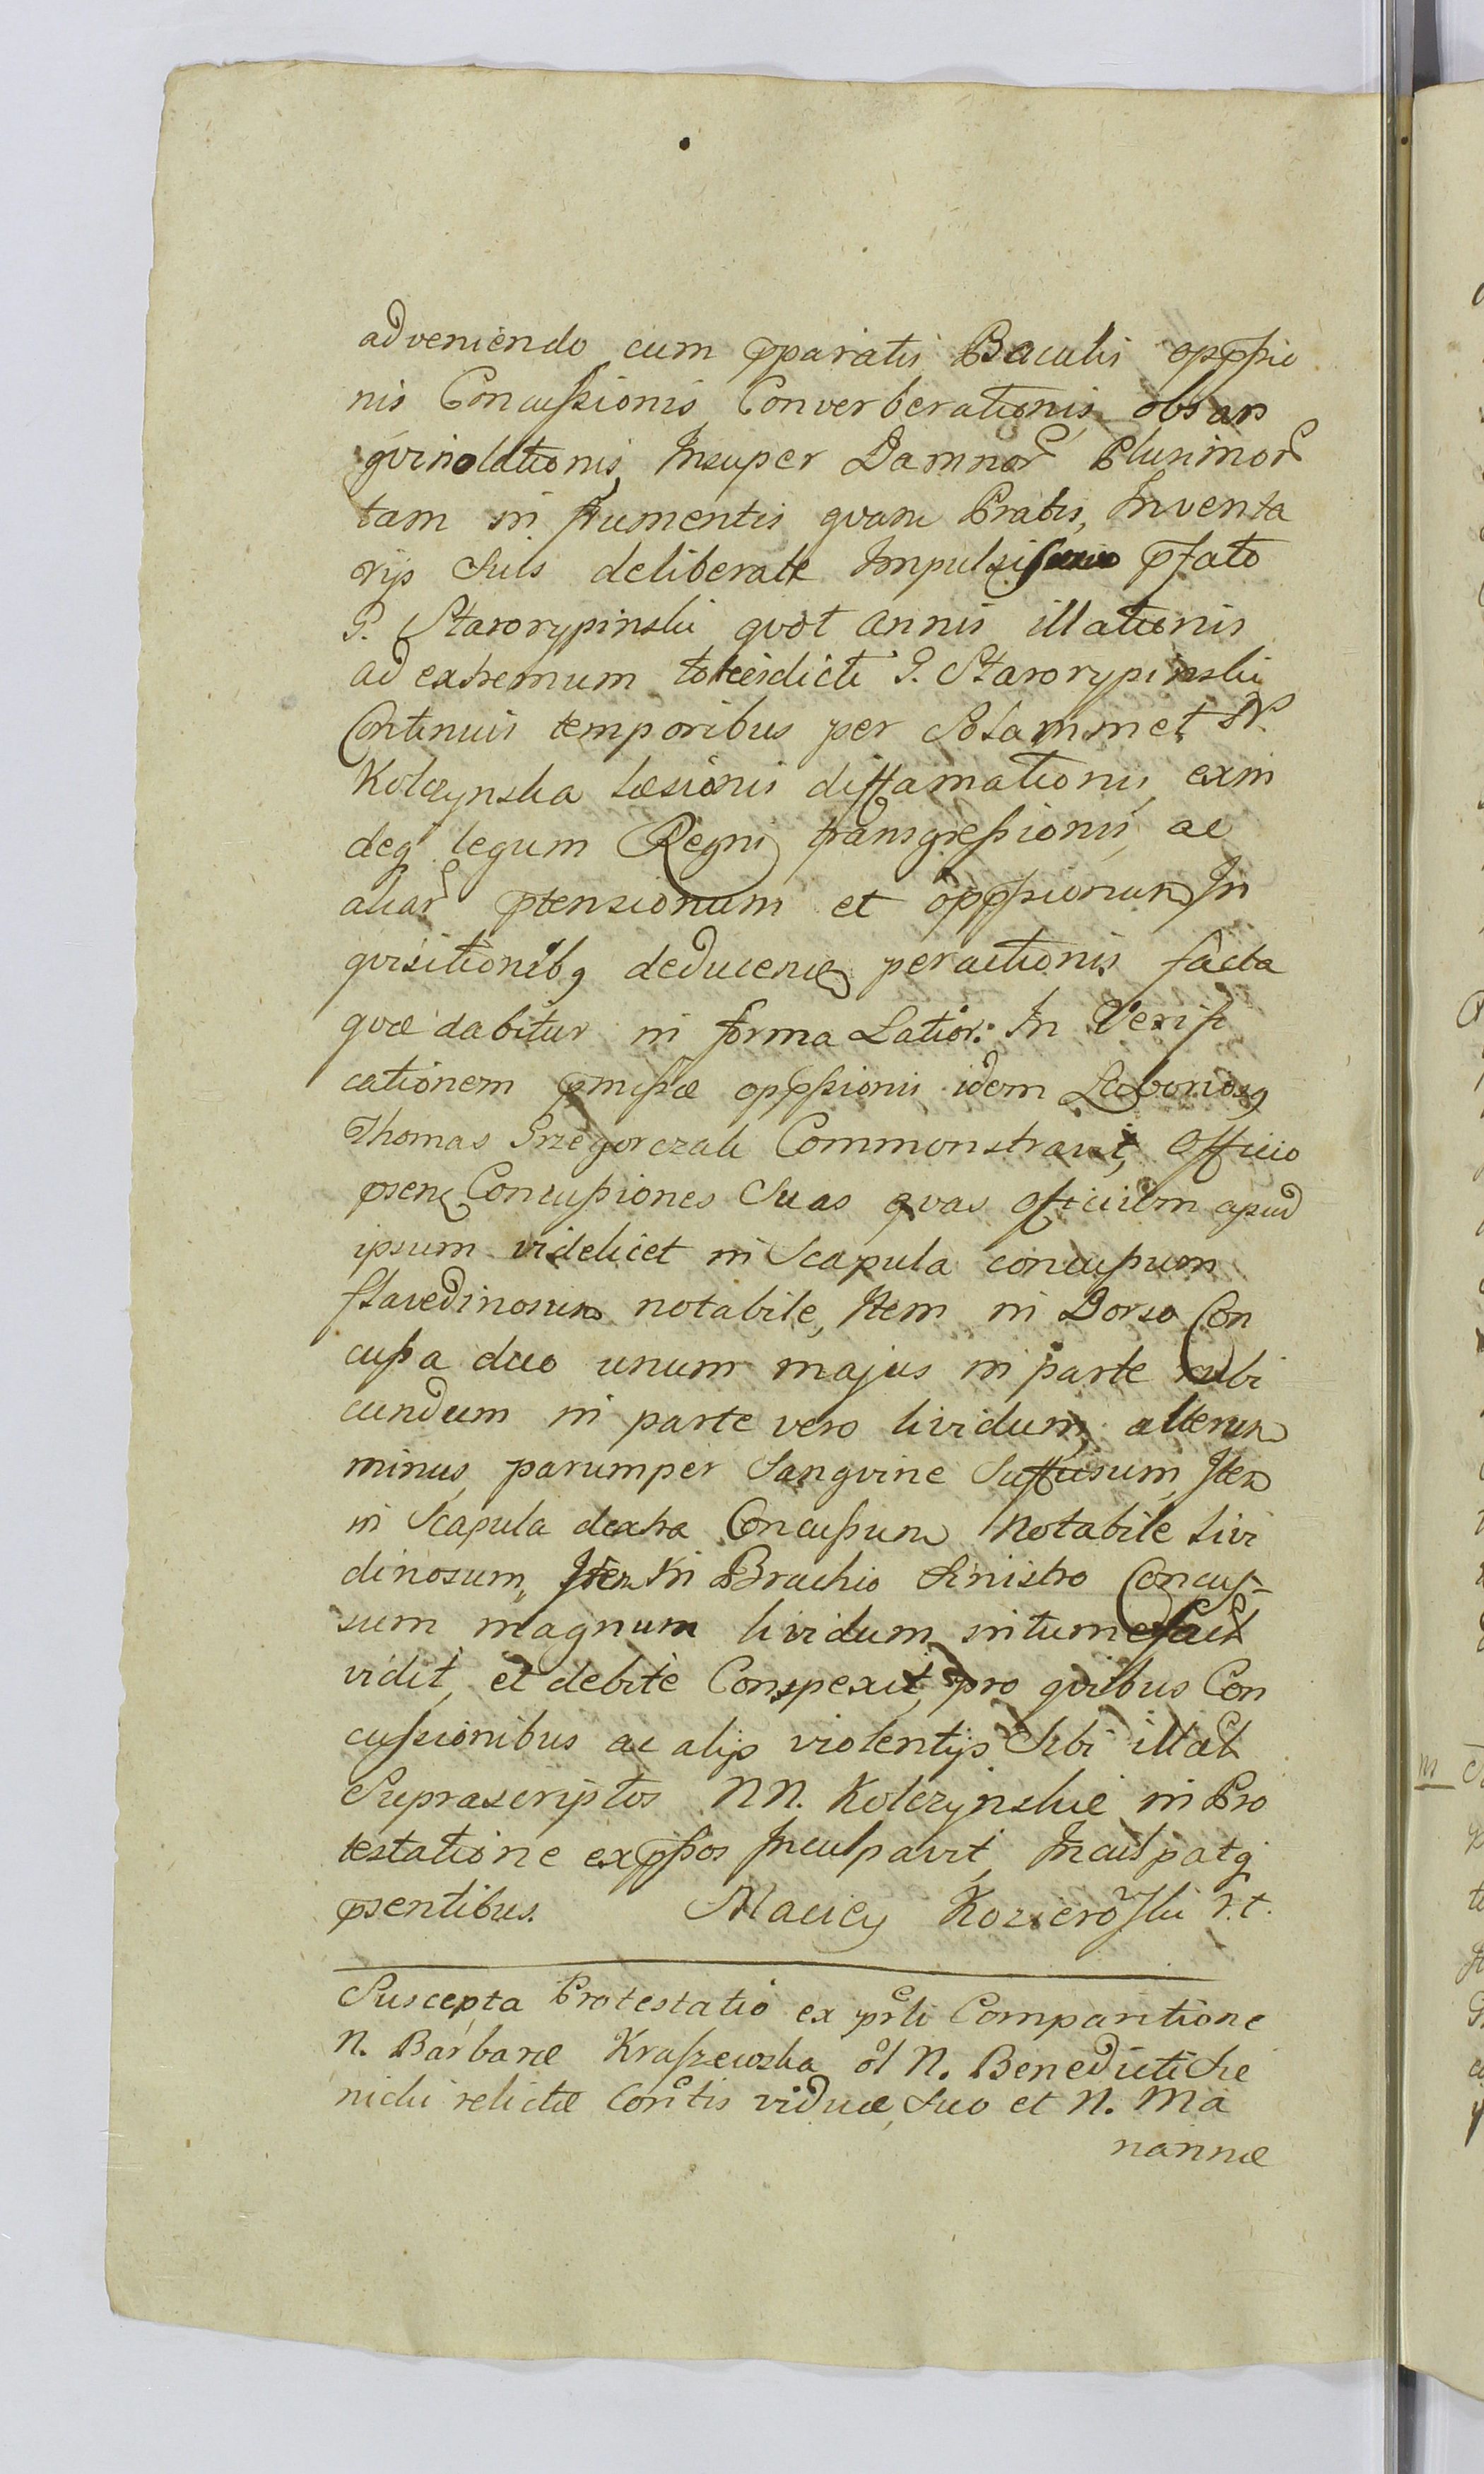 adveniendo cum pparatis Baculis oppssio
nis Concussionis Converberationis obsan
gvinolationis, Insuper Damnor Plurimor
tam in frumentis qvam Pratis, Inventa
rijs Suis deliberate pfato
G. Starorypinski qvot annis illationis
ad extremum totiesdicti G. Starorypinski
Continuis temporibus per Solammet N.
Kolczynska laesionis diffamationis, exin
deq legum Regni transgressionis, ac
aliar ptensionum et oppssionum In
qvisitionibq deducen peractionis facta
qvae dabitur in forma Latior: In Verifi
cationem pmissae oppssionis idem Laboriosq
Thomas Grzegorczak Commonstravit, Officio
psen Concussiones Suas qvas Officium apud
ipsum videlicet in Scapula concussum
flavedinosum notabile, Item in Dorso Con
cussa duo unum majus in parte rubi
cundum in parte vero lividum, alterum
minus, parumper Sangvine Suffusum, Item
in Scapula dextra Concussum Notabile livi
dinosum, Item in Brachio Sinistro Concus-
sum magnum lividum intumefact
vidit, et debite Conspexit, pro qvibus Con
cussionibus ac alijs violentijs Sibi illat
Suprascriptos NN. Kolczynskie in Pro
testatione expssos Inculpavit, Inculpatq
psentibus. Maciey Kozierowski r.t.
Suscepta Protestatio ex prli Comparitione
N. Barbarae Kraszewska ol N. Benedicti Sie
nicki relictae Contis viduae, Suo et N. Ma
riannae